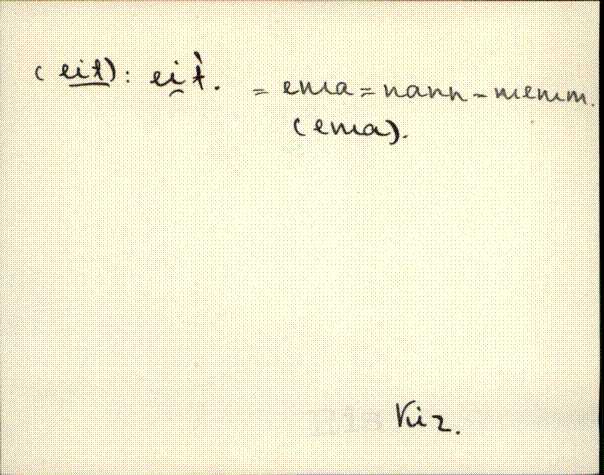 (eit): ei̯t̀. = ema = nann - memm.
(ema).
Vii2.